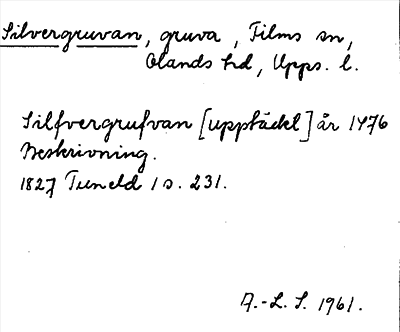 Silvergruvan, gruva, Films sn,
Olands hd, Upps. l.
Silfvergrufvan [upptäckt] år 1476
Beskrivning.
1827 Tuneld 1 s. 231.
A.-L. S. 1961.